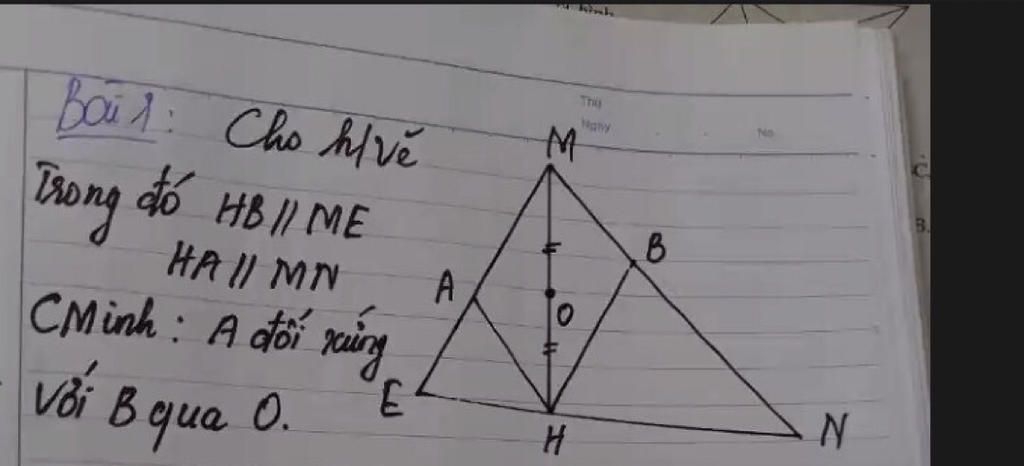 Bài 1: Cho h/vẽ
Trong đó HB // ME
HA // MN
CMinh: A đối xứng
với B qua O.
Thứ
Ngày
No
M
B
A
O
E
H
N